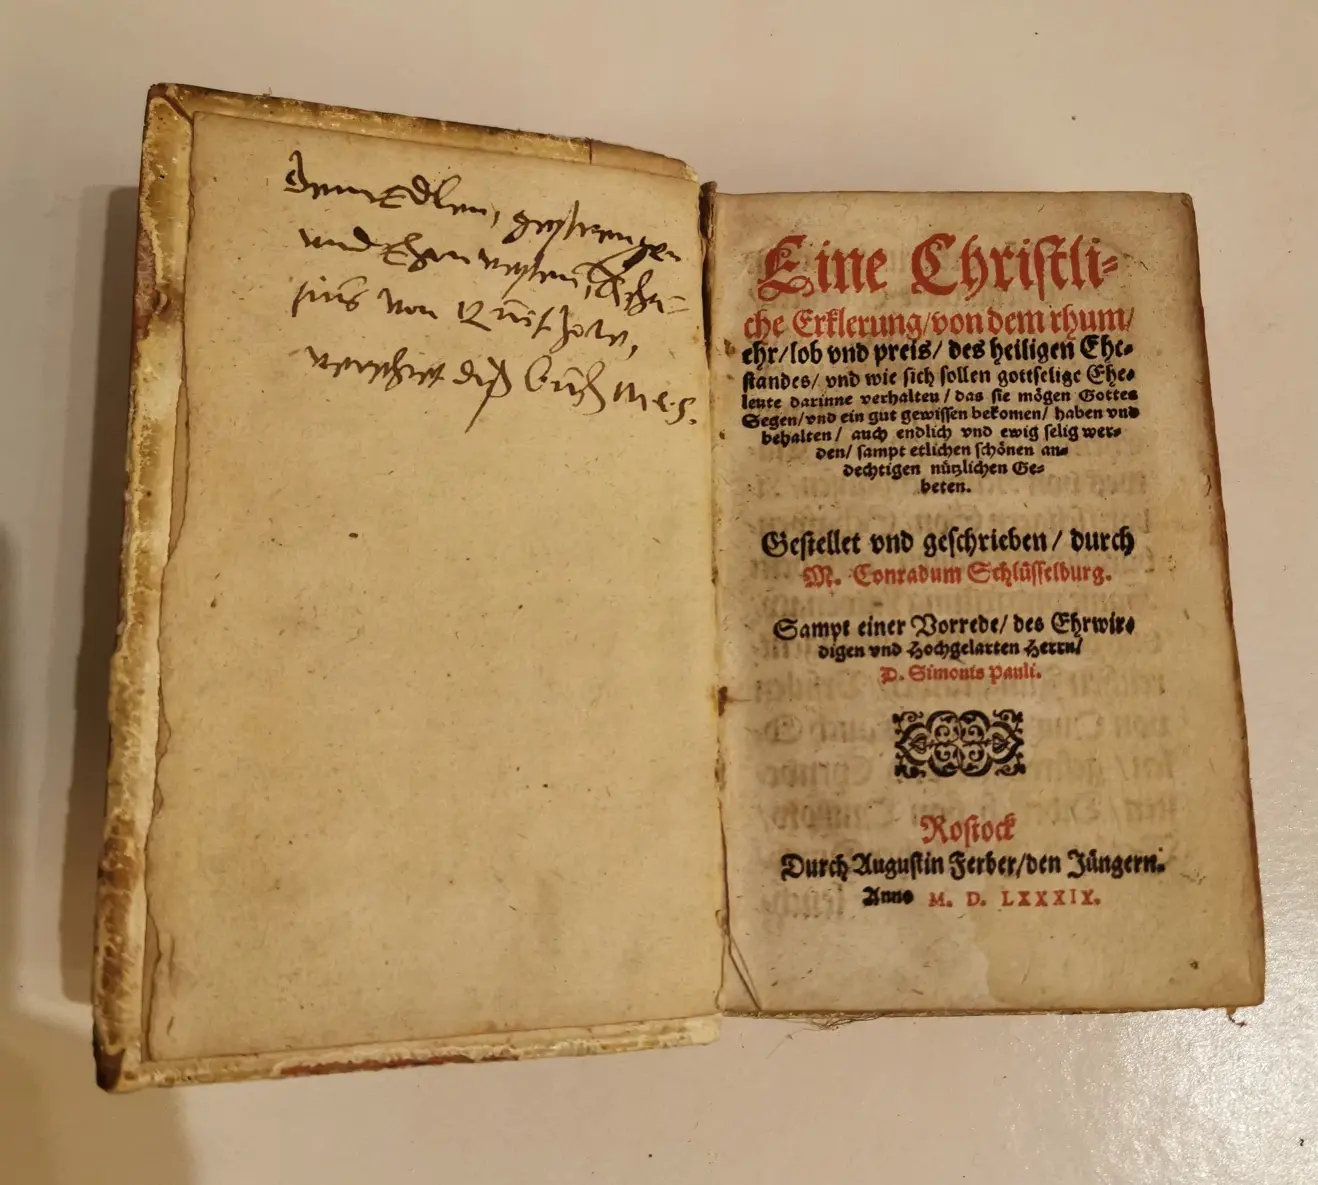 dem Edlen, gestrengen
und Ehrnvesten, Acha=
tius von
verehret diß buch M.C.S.
Eine Christli-
che Erklerung/von dem rhum/
ehr/lob vnd preis/ des heiligen Ehe-
standes/ vnd wie sich sollen gottselige Ehe-
leute darinne verhalten/ das sie mögen Gottes
Segen/vnd ein gut gewissen bekomen/ haben vnd
behalten/ auch endlich vnd ewig selig wer-
den/ sampt etlichen schönen an-
dechtigen nützlichen Ge-
beten.
Gestellet vnd geschrieben/ durch
M. Conradum Schlüsselburg.
Sampt einer Vorrede/ des Ehrwir-
digen vnd Hochgelarten Herrn/
D. Simonis Pauli.
Rostock
Durch Augustin Ferber/den Jüngern.
Anno M. D. LXXXIX.